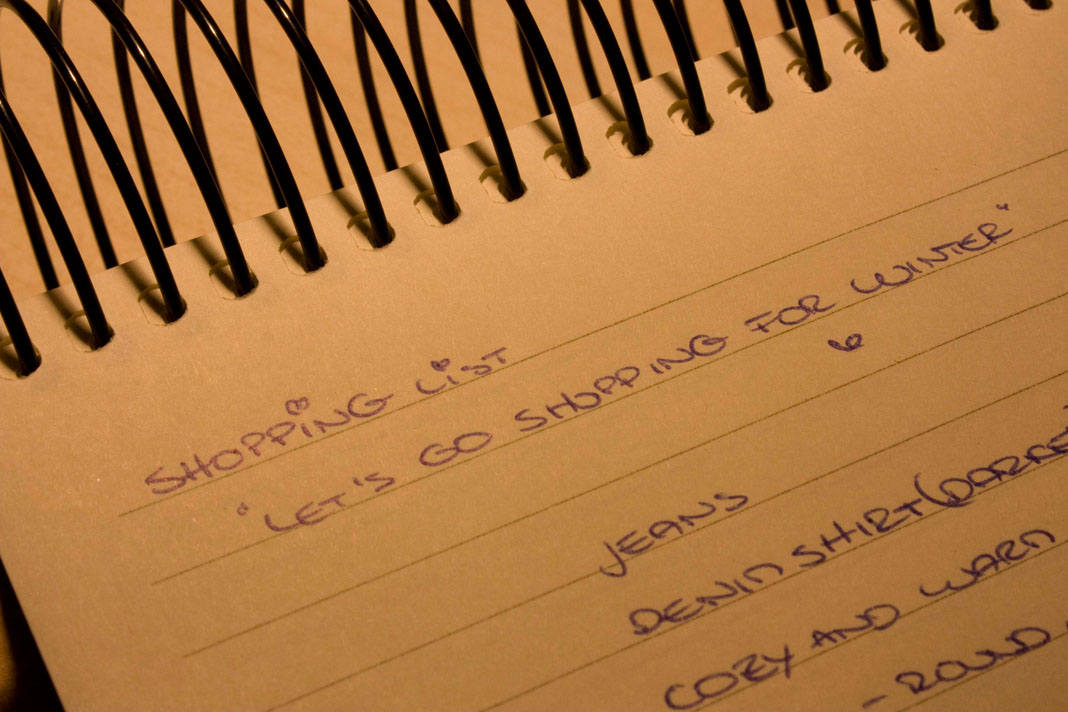 SHOPPING LIST
"LET'S GO SHOPPING FOR WINTER"
JEANS
DENIM SHIRT
COZY AND WARM
- ROUND